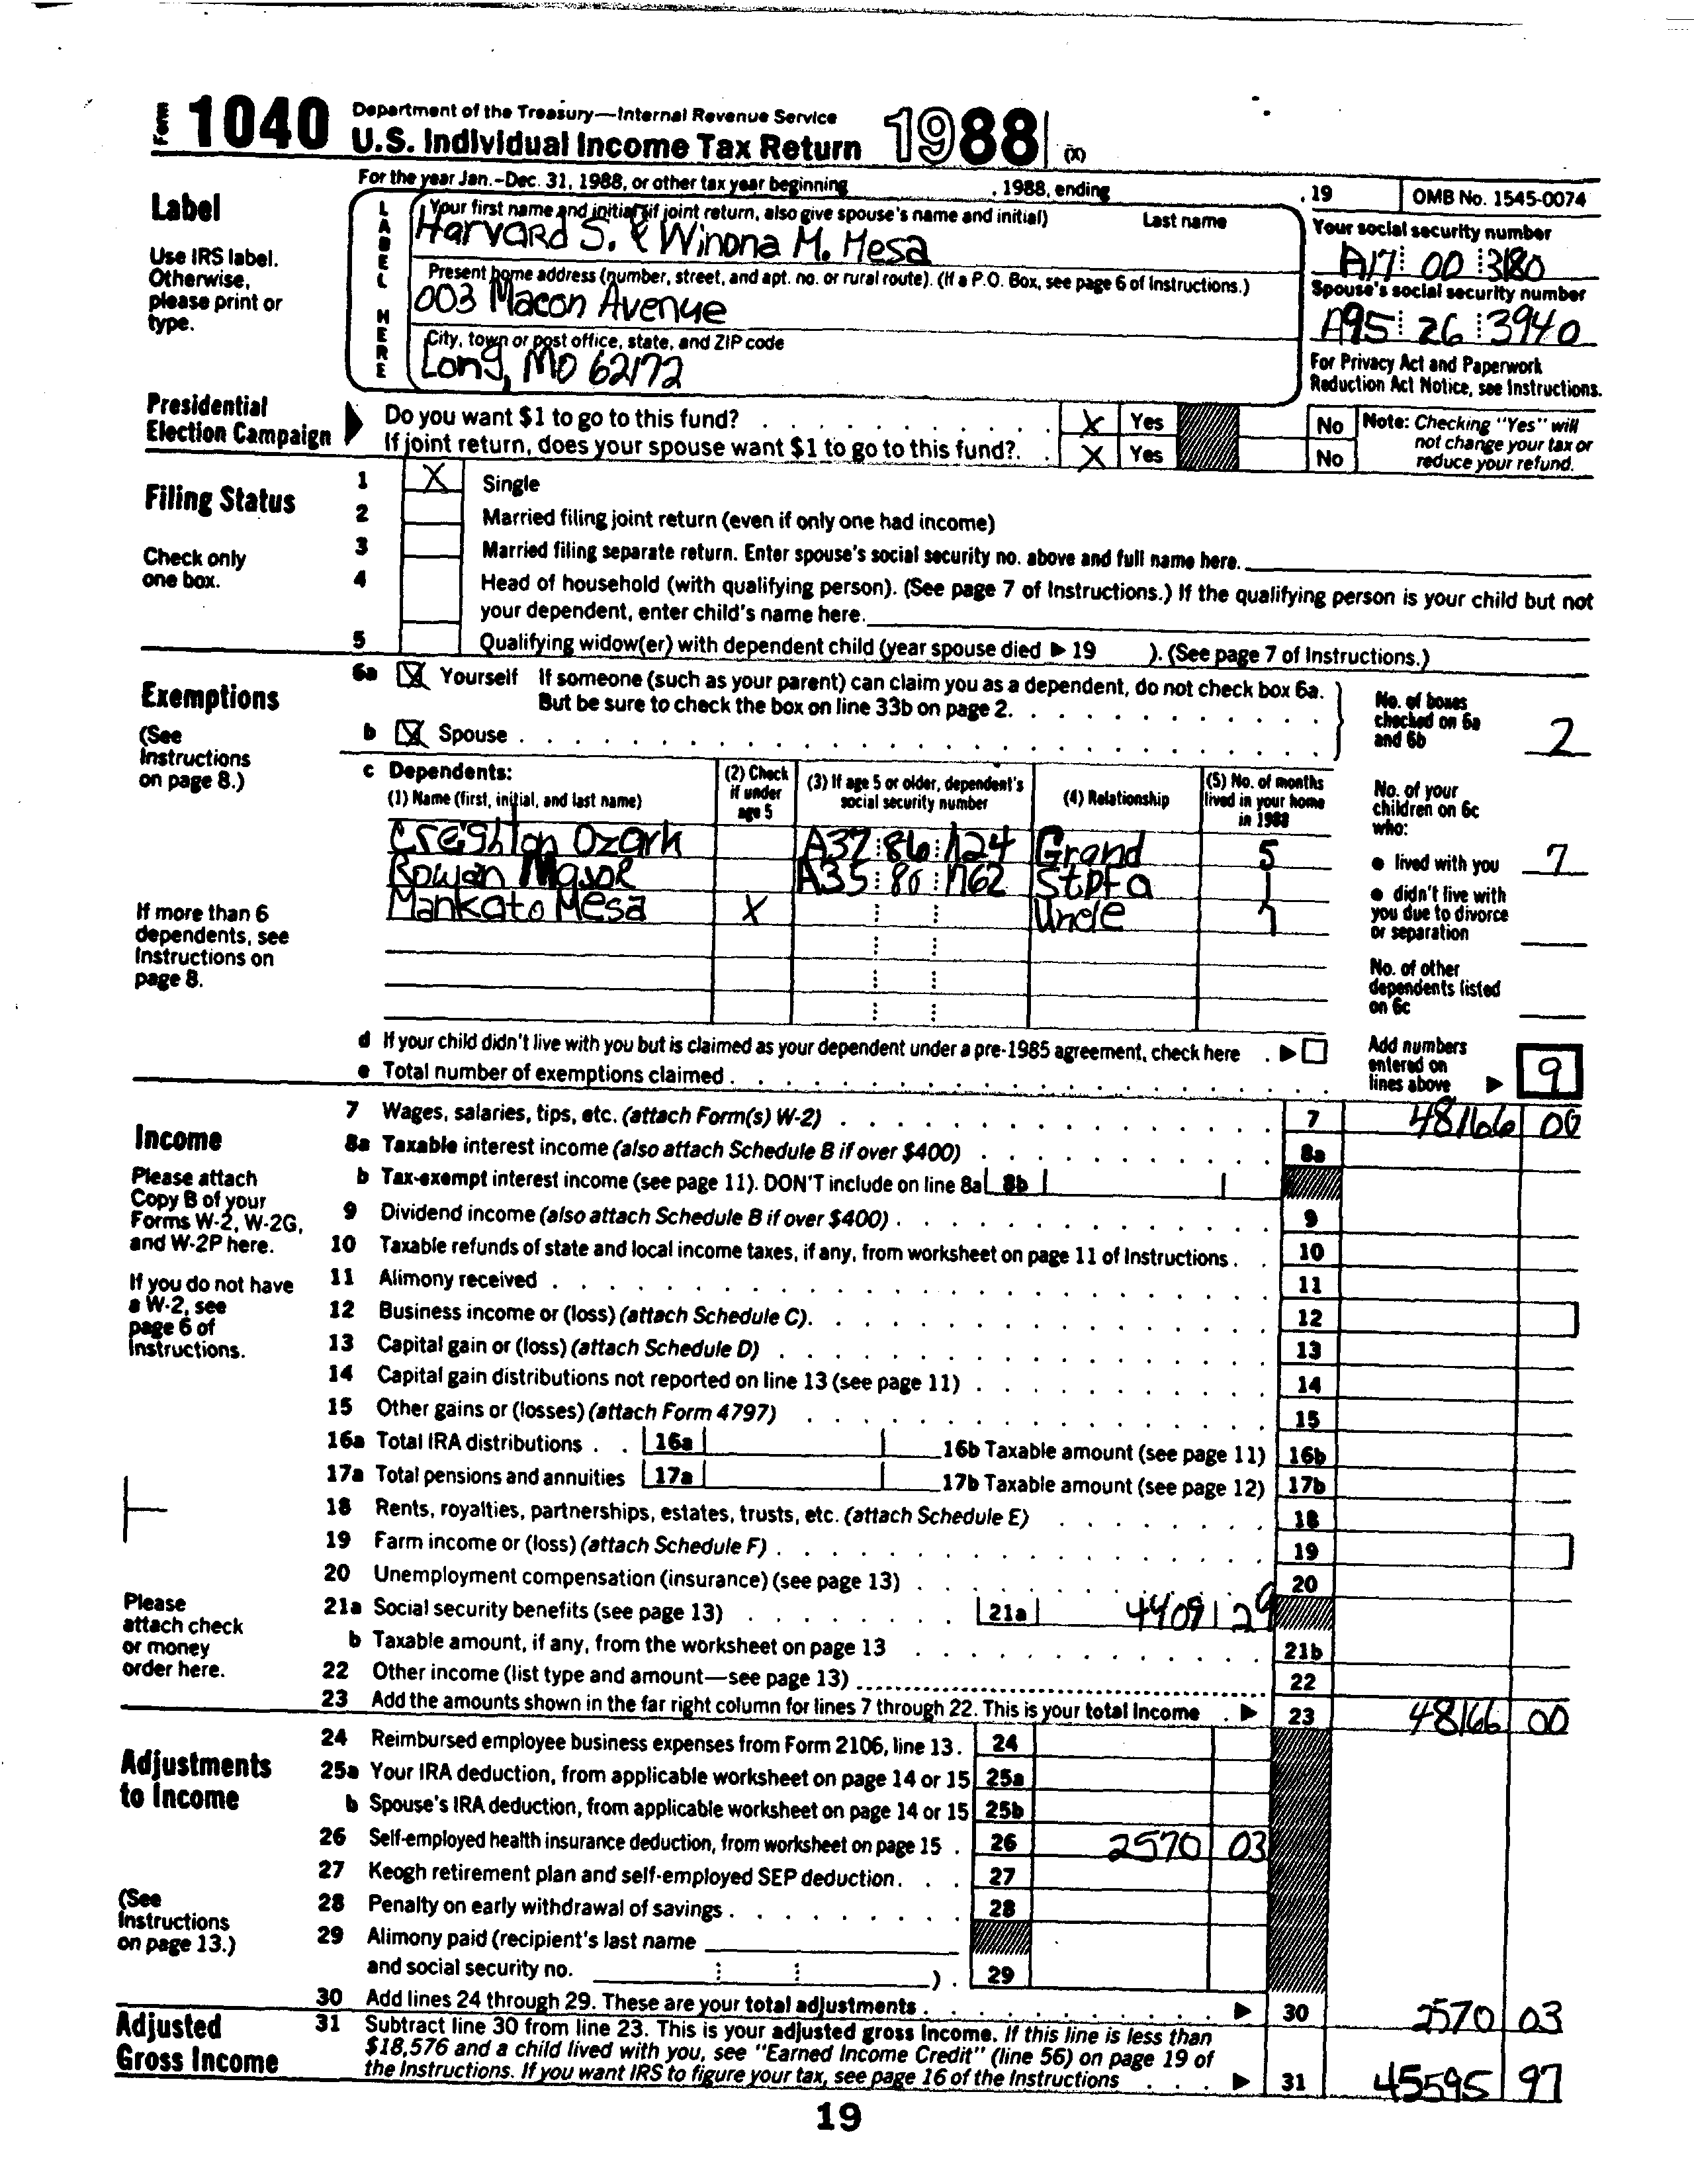 Form 1040 Department of the Treasury—Internal Revenue Service
U.S. Individual Income Tax Return 1988 (X)
For the year Jan.–Dec. 31, 1988, or other tax year beginning , 1988, ending , 19 OMB No. 1545-0074
Label
Use IRS label.
Otherwise,
please print or
type.
LABEL HERE
Your first name and initial (if joint return, also give spouse's name and initial) Last name
Harvard S. & Winona M. Mesa
Present home address (number, street, and apt. no. or rural route). (If a P.O. Box, see page 6 of Instructions.)
003 Macon Avenue
City, town or post office, state, and ZIP code
Long, MO 62172
Your social security number
A17 00 3180
Spouse's social security number
A95 26 3940
For Privacy Act and Paperwork
Reduction Act Notice, see Instructions.
Presidential
Election Campaign
Do you want $1 to go to this fund? X Yes No
If joint return, does your spouse want $1 to go to this fund? X Yes No
Note: Checking "Yes" will
not change your tax or
reduce your refund.
Filing Status
Check only
one box.
1 X Single
2 Married filing joint return (even if only one had income)
3 Married filing separate return. Enter spouse's social security no. above and full name here.
4 Head of household (with qualifying person). (See page 7 of Instructions.) If the qualifying person is your child but not
your dependent, enter child's name here.
5 Qualifying widow(er) with dependent child (year spouse died ▶ 19 ). (See page 7 of Instructions.)
Exemptions
(See
Instructions
on page 8.)
If more than 6
dependents, see
Instructions on
page 8.
6a X Yourself If someone (such as your parent) can claim you as a dependent, do not check box 6a.
But be sure to check the box on line 33b on page 2.
b X Spouse
No. of boxes
checked on 6a
and 6b 2
c Dependents:
(1) Name (first, initial, and last name) (2) Check if under age 5 (3) If age 5 or older, dependent's social security number (4) Relationship (5) No. of months lived in your home in 1988
Creighton Ozark A37 86 1124 Grand 5
Rowan Major A35 80 1762 StpFa 1
Mankato Mesa X Uncle 7
No. of your
children on 6c
who:
● lived with you 7
● didn't live with
you due to divorce
or separation
No. of other
dependents listed
on 6c
d If your child didn't live with you but is claimed as your dependent under a pre-1985 agreement, check here ▶
e Total number of exemptions claimed
Add numbers
entered on
lines above ▶ 9
Income
Please attach
Copy B of your
Forms W-2, W-2G,
and W-2P here.
If you do not have
a W-2, see
page 6 of
Instructions.
Please
attach check
or money
order here.
7 Wages, salaries, tips, etc. (attach Form(s) W-2) 7 48166 00
8a Taxable interest income (also attach Schedule B if over $400) 8a
b Tax-exempt interest income (see page 11). DON'T include on line 8a 8b
9 Dividend income (also attach Schedule B if over $400) 9
10 Taxable refunds of state and local income taxes, if any, from worksheet on page 11 of Instructions 10
11 Alimony received 11
12 Business income or (loss) (attach Schedule C) 12
13 Capital gain or (loss) (attach Schedule D) 13
14 Capital gain distributions not reported on line 13 (see page 11) 14
15 Other gains or (losses) (attach Form 4797) 15
16a Total IRA distributions 16a 16b Taxable amount (see page 11) 16b
17a Total pensions and annuities 17a 17b Taxable amount (see page 12) 17b
18 Rents, royalties, partnerships, estates, trusts, etc. (attach Schedule E) 18
19 Farm income or (loss) (attach Schedule F) 19
20 Unemployment compensation (insurance) (see page 13) 20
21a Social security benefits (see page 13) 21a 4409 29
b Taxable amount, if any, from the worksheet on page 13 21b
22 Other income (list type and amount—see page 13) 22
23 Add the amounts shown in the far right column for lines 7 through 22. This is your total income ▶ 23 48166 00
Adjustments
to Income
(See
Instructions
on page 13.)
24 Reimbursed employee business expenses from Form 2106, line 13. 24
25a Your IRA deduction, from applicable worksheet on page 14 or 15 25a
b Spouse's IRA deduction, from applicable worksheet on page 14 or 15 25b
26 Self-employed health insurance deduction, from worksheet on page 15 26 2570 03
27 Keogh retirement plan and self-employed SEP deduction 27
28 Penalty on early withdrawal of savings 28
29 Alimony paid (recipient's last name
and social security no. ) 29
30 Add lines 24 through 29. These are your total adjustments ▶ 30 2570 03
Adjusted
Gross Income
31 Subtract line 30 from line 23. This is your adjusted gross income. If this line is less than
$18,576 and a child lived with you, see "Earned Income Credit" (line 56) on page 19 of
the Instructions. If you want IRS to figure your tax, see page 16 of the Instructions ▶ 31 45595 97
19